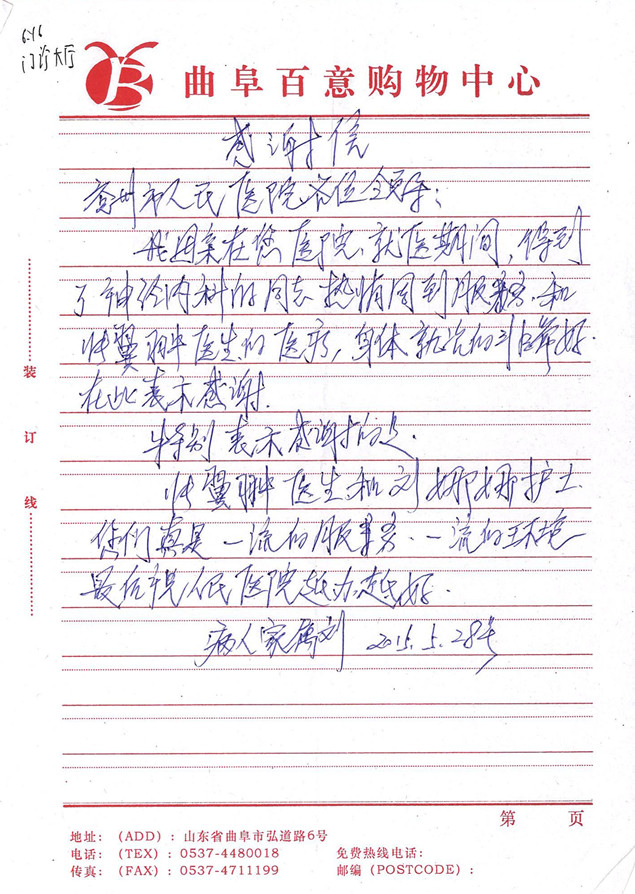 6.16
门诊大厅
曲阜百意购物中心
感谢信
兖州市人民医院各位领导：
我姻亲在您医院就医期间，得到
了神经内科的同志热情周到服务.和
张翼翀医生的医疗，身体
在此表示感谢.
特别表示感谢的是.
张翼翀医生和刘娜娜护士.
你们真是一流的服务.一流的环境
最后祝人民医院越办越好.
病人家属刘 2015.5.28号
装
订
线
第 页
地址：（ADD）：山东省曲阜市弘道路6号
电话：（TEX）：0537-4480018 免费热线电话：
传真：（FAX）：0537-4711199 邮编（POSTCODE）：